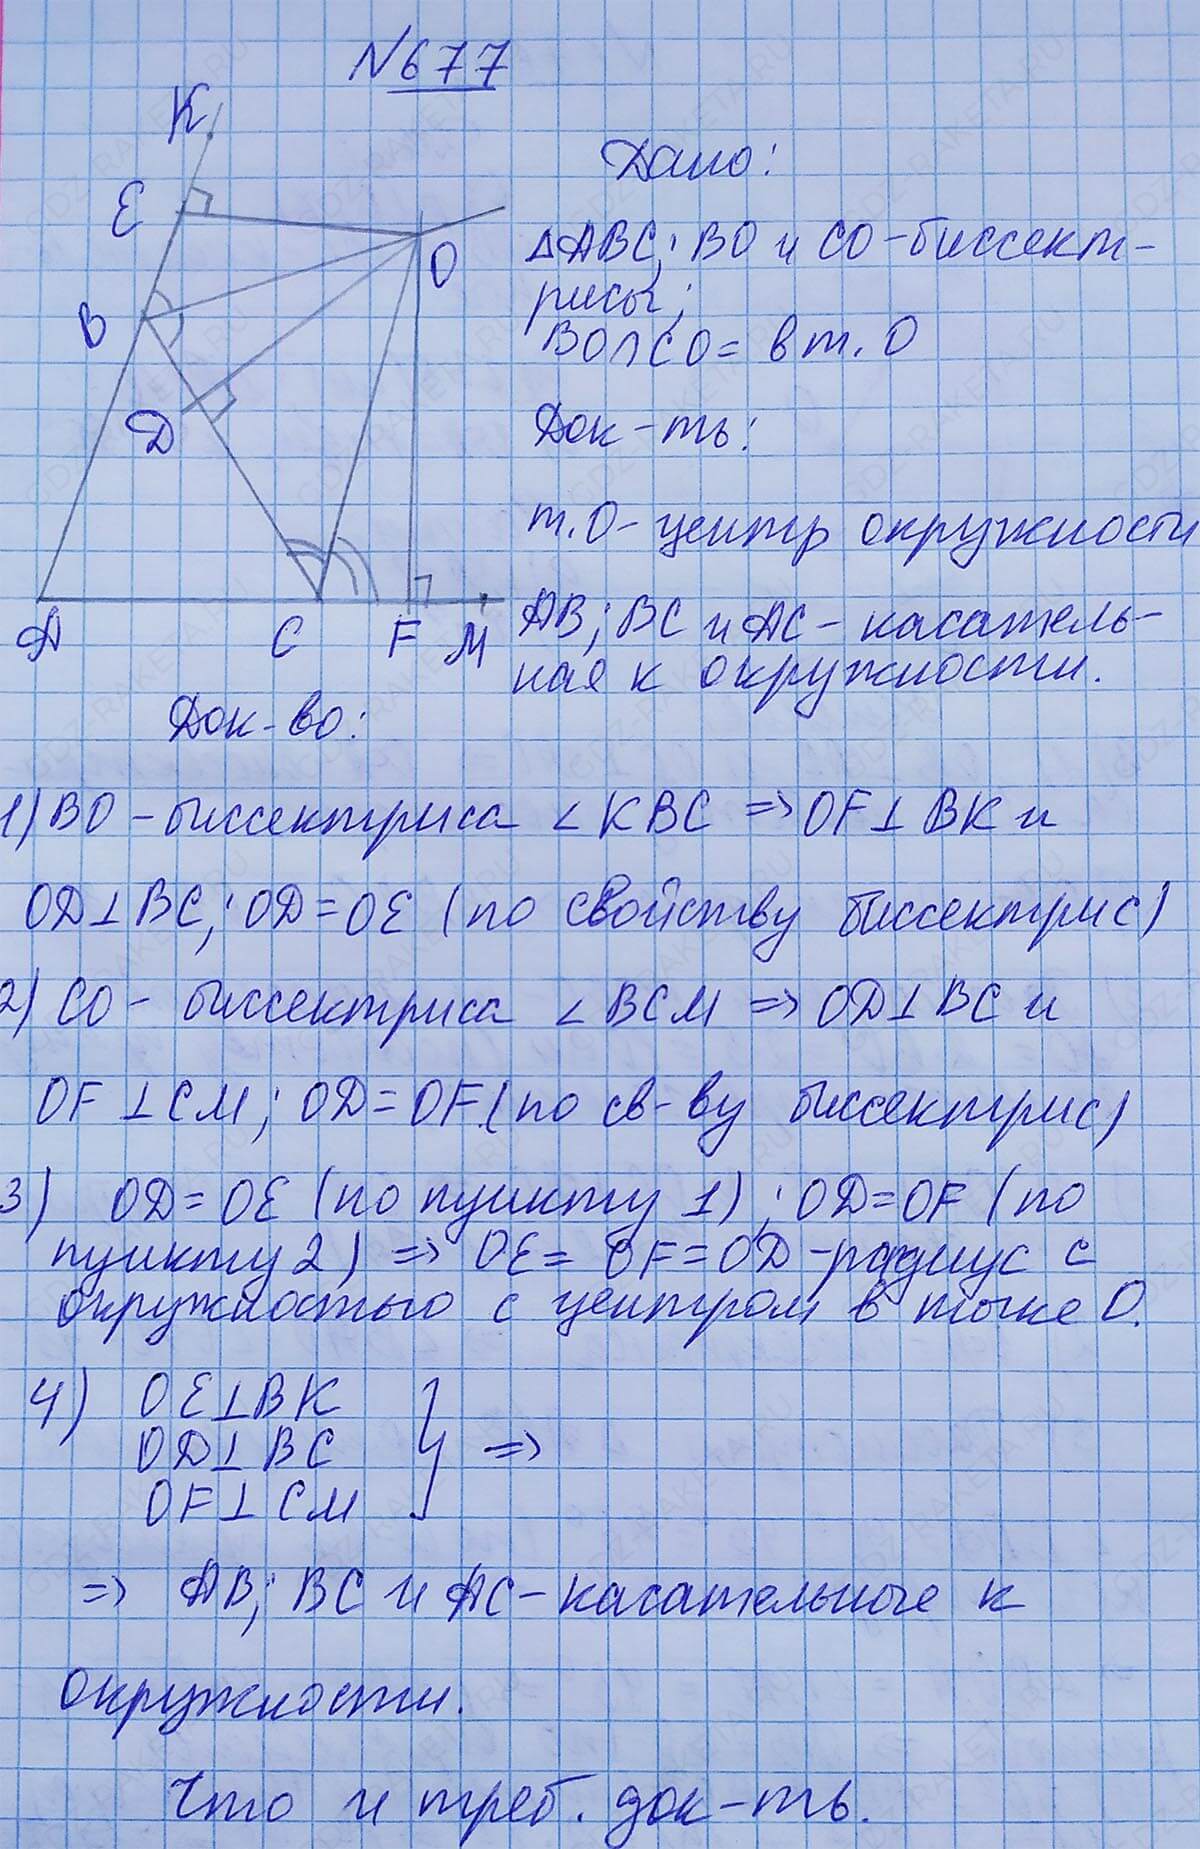 N677
K
E
B
D
O
A
C
F
M
Дано:
△ABC; BO и CO-биссект-
рисы;
BO∩CO= в т. O
Док-ть:
т.O-центр окружности
AB; BC и AC- касатель-
ная к окружности.
Док-во:
1) BO -биссектриса ∠KBC => OF⊥BK и
OD⊥BC; OD=OE (по свойству биссектрис)
2) CO- биссектриса ∠BCM => OD⊥BC и
OF⊥CM; OD=OF.(по св-ву биссектрис)
3) OD=OE (по пункту 1); OD=OF (по
пункту 2) => OE= OF=OD-радиус с
окружностью с центром в точке O.
4) OE⊥BK
OD⊥BC
OF⊥CM
} =>
=> AB; BC и AC-касательные к
окружности.
Что и треб. док-ть.